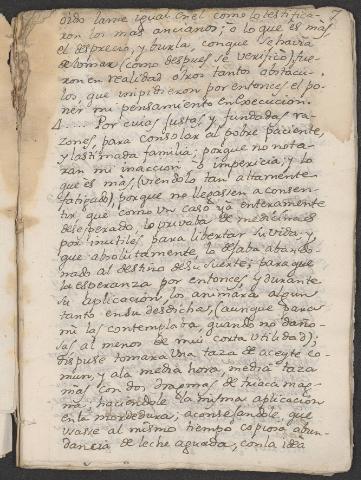 oido lame igual en el como lo testifica-
ron los mas ancianos; o lo que es mas
el desprecio, y burla, conque se havia
de tomar (como despues se verificó) fue
ron en realidad otros tantos obstacu-
los, que impidieron por entonces el po-
ner mi pensamiento en execucion.
4.... Por cuias justas, y fundadas ra-
zones, para consolar al pobre paciente,
y lastimada familia; porque no nota-
ran mi inaccion, o impericia; y lo
que es màs, (viendolo tan altamente
fatigado), porque no llegassen a consen-
tir, que como un caso ya enteramente
desesperado, lo privaba de medicinas
por inutiles, para libertar su vida y
que absolutamente lo dejaba aban-
nado al destino de su suerte; para que
la esperanza por entonces, y durante
su aplicacion, los animára algun
tanto en su desdicha, (aunque para
mi la contemplara, quando no daño-
sa, al menos de mui corta utilidad);
dispuse tomara una taza de aceyte co-
mun, y a la media hora, media taza
màs con dos dragmas de triaca mag-
ma; haciendole la misma aplicacion
en la mordedura; aconsejandole, que
usasse al mismo tiempo copiosa abun-
dancia de leche aguada, con la idea